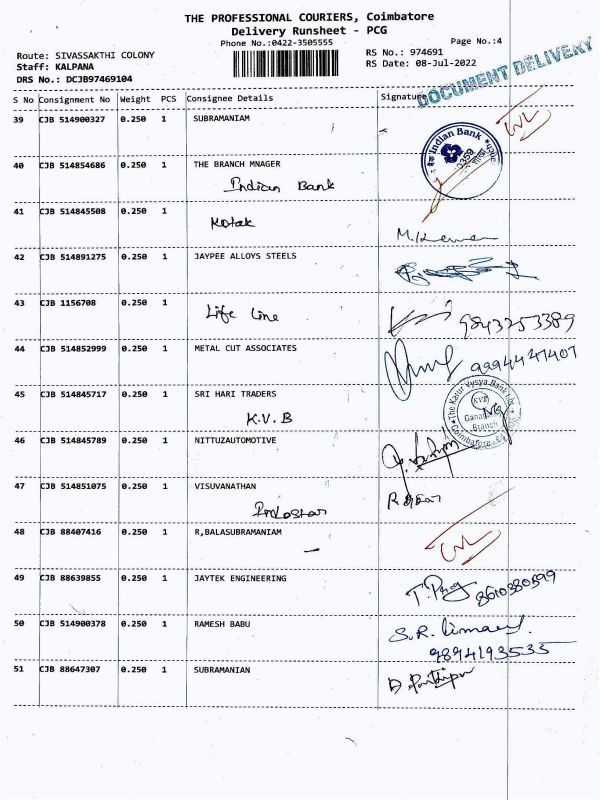 THE PROFESSIONAL COURIERS, Coimbatore
Delivery Runsheet - PCG
Phone No.:0422-3505555
Page No.:4
Route: SIVASSAKTHI COLONY
RS No.: 974691
Staff: KALPANA
RS Date: 08-Jul-2022
DRS No.: DCJB97469104
DOCUMENT DELIVERY
S No Consignment No Weight PCS Consignee Details Signature
39 CJB 514900327 0.250 1 SUBRAMANIAM
Indian Bank
40 CJB 514854686 0.250 1 THE BRANCH MNAGER
Indian Bank
41 CJB 514845508 0.250 1
Kotak
42 CJB 514891275 0.250 1 JAYPEE ALLOYS STEELS
43 CJB 1156708 0.250 1
Life Line
9843253389
44 CJB 514852999 0.250 1 METAL CUT ASSOCIATES
9994447407
45 CJB 514845717 0.250 1 SRI HARI TRADERS
K.V.B
The Karur Vysya Bank Ltd
KVB
Branch
Coimbatore
46 CJB 514845789 0.250 1 NITTUZAUTOMOTIVE
47 CJB 514851075 0.250 1 VISUVANATHAN
48 CJB 88407416 0.250 1 R,BALASUBRAMANIAM
49 CJB 88639855 0.250 1 JAYTEK ENGINEERING
8610380599
50 CJB 514900378 0.250 1 RAMESH BABU
S.R.
9894193535
51 CJB 88647307 0.250 1 SUBRAMANIAN